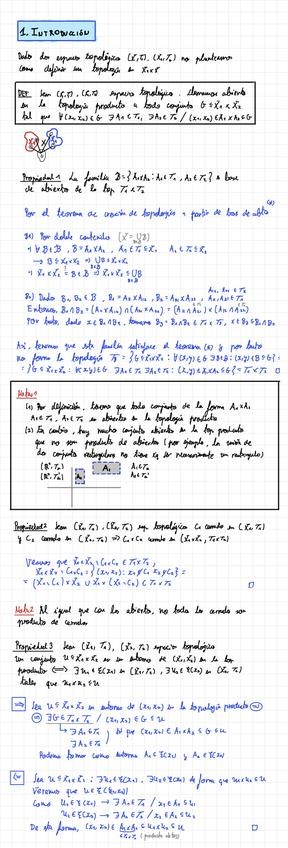 1. INTRODUCCIÓN
Dados dos espacios topológicos (X₁,T₁), (X₂,T₂) nos planteamos
como definir una topología en X₁×X₂
DEF Sean (X₁,T₁), (X₂,T₂) espacios topológicos. Llamamos abierto
en la topología producto a todo conjunto G ⊆ X₁×X₂
tal que ∀(x₁,x₂)∈G ∃A₁∈T₁, ∃A₂∈T₂ / (x₁,x₂)∈A₁×A₂⊆G
Propiedad 1 La familia B={A₁×A₂ : A₁∈T₁, A₂∈T₂} es base
de abiertos de la top. T₁×T₂
Por el teorema de creación de topologías a partir de bases de abtos
B1) Por doble contenido
∀B∈B, B=A₁×A₂, A₁∈T₁⊆X₁ A₂∈T₂⊆X₂
B2) Dados B₁, B₂∈B, B₁=A₁₁×A₁₂, B₂=A₂₁×A₂₂
Entonces, B₁∩B₂=(A₁₁×A₁₂)∩(A₂₁×A₂₂)=(A₁₁∩A₂₁)×(A₁₂∩A₂₂)
Por tanto, dado x∈B₁∩B₂, tomamos B₃=B₁∩B₂
Así, tenemos que esta familia satisface el teorema y por tanto
nos forma la topología
Nota 1
(1) Por definición, tenemos que todo conjunto de la forma A₁×A₂
A₁∈T₁, A₂∈T₂ es abierto en la topología producto
(2) En cambio, hay muchos conjuntos abiertos en la top producto
que no son producto de abiertos (por ejemplo, la unión de
dos conjuntos rectangulares no tiene por qué ser necesariamente un rectángulo)
A₁
A₂
Propiedad 2 Sean (X₁,T₁), (X₂,T₂) esp. topológicos C₁ cerrado en (X₁,T₁)
y C₂ cerrado en (X₂,T₂) ⇒ C₁×C₂ cerrado en (X₁×X₂, T₁×T₂)
Veamos que X₁×X₂ \ C₁×C₂ ∈ T₁×T₂
Nota 2 Al igual que con los abiertos, no todos los cerrados son
producto de cerrados
Propiedad 3 Sean (X₁,T₁), (X₂,T₂) espacios topológicos
Un conjunto U⊆X₁×X₂ es un entorno de (x₁,x₂) en la top
producto ⟺ ∃U₁∈E(x₁) en (X₁,T₁), ∃U₂∈E(x₂) en (X₂,T₂)
tales que U₁×U₂⊆U
⇒ Sea U⊆X₁×X₂ entorno de (x₁,x₂) en la topología producto
∃G∈T₁×T₂ / (x₁,x₂)∈G⊆U
∃A₁∈T₁
∃A₂∈T₂
tal que (x₁,x₂)∈A₁×A₂⊆G⊆U
Podemos tomar como entornos A₁∈E(x₁) y A₂∈E(x₂)
⇐ Sea U⊆X₁×X₂ : ∃U₁∈E(x₁), ∃U₂∈E(x₂) de forma que U₁×U₂⊆U
Veremos que U∈E(x₁,x₂)
Como U₁∈E(x₁) → ∃A₁∈T₁ / x₁∈A₁⊆U₁
U₂∈E(x₂) → ∃A₂∈T₂ / x₂∈A₂⊆U₂
De esta forma, (x₁,x₂)∈A₁×A₂⊆U₁×U₂⊆U
∈T₁×T₂ (producto abtos)